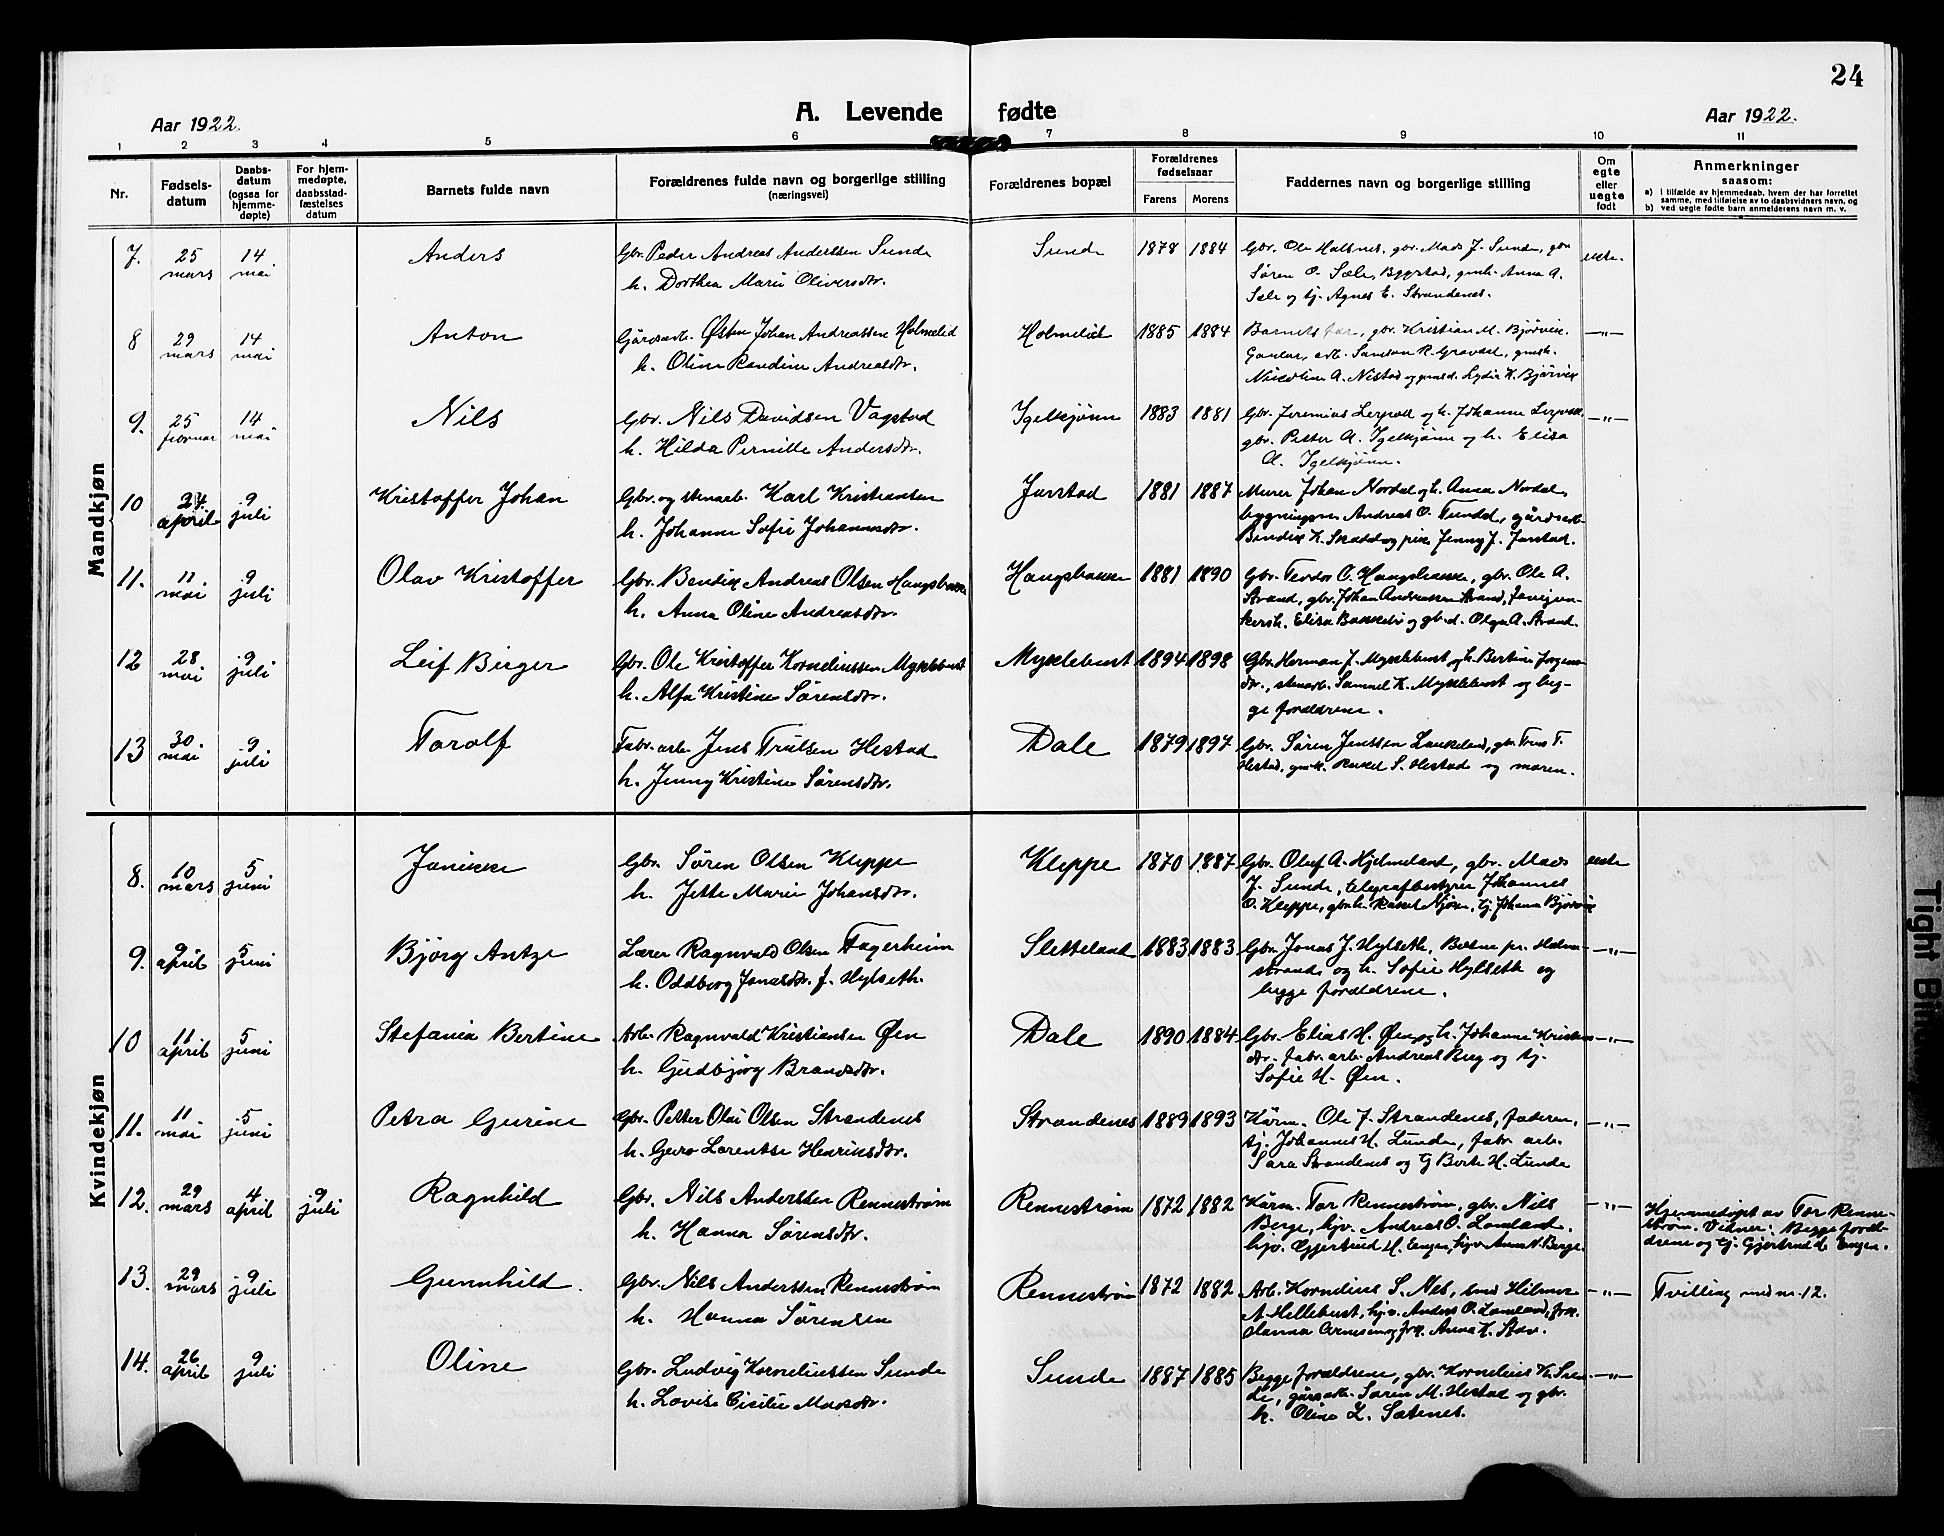 24
A. Levende fødte
Aar 1922.
Aar 1922.
1 2 3 4 5 6 7 8 9 10 11
Nr.
Fødsels-
datum
Daabs-
datum
(ogsaa for
hjemme-
døpte)
For hjem-
medøpte,
daabsstad-
fæstelses
datum
Barnets fulde navn
Forældrenes fulde navn og borgerlige stilling
(næringsvei)
Forældrenes bopæl
Forældrenes
fødselsaar
Farens Morens
Faddernes navn og borgerlige stilling
Om
egte
eller
uegte
født
Anmerkninger
saasom:
a) i tilfælde av hjemmedaab, hvem der har forrettet
samme, med tilføielse av to daabsvidners navn, og
b) ved uegte fødte barn anmelderens navn m. v.
Mandkjøn
7. 25 mars 14 mai Anders Gbr. Peder Andreas Anderssen Sunde Sunde 1878 1884 Gbr. Ole Halsnes, gbr. Mads J. Sunde, gbr
h. Dorthea Marie Oliversdtr. Søren O. Sæle, Bygstad, gmh. Anna A.
Sæle og tj. Agnes E. Strandenes.
8 29 mars 14 mai Anton Gårdsarb. Østen Johan Andreassen Holmelid Holmelid 1885 1884 Barnets far, gbr. Kristian M. Bjørvik
h. Oline Randine Andreasdtr. Gaular, arb. Samson R.
Nikoline A. Nistad og Lydia K. Bjørvik
9. 25 februar 14 mai Nils Gbr. Nils Davidsen Vagstad Igelkjønn 1883 1881 Gbr. Jeremias og h. Johanne
h. Hilda Pernille Andersdtr. gbr. Petter A. Igelkjønn og h. Elisa
A. Igelkjønn.
10 24. april 9 juli Kristoffer Johan Gbr. og stenarb. Karl Kristiansen Jarstad 1881 1887 Murer Johan Nordal og h. Anna Nordal,
h. Johanne Sofie Johannesdtr. Andreas O. gårdsarb.
Bendix K. og pike Jenny J. Jarstad.
11. 11 mai 9 juli Olav Kristoffer Gbr. Bendix Andreas Olsen Haugsbakke Haugsbakke 1881 1890 Gbr. Teodor O. Haugsbakke, gbr. Ole A.
h. Anna Oline Andreasdtr. Strand, gbr. Johan Andreassen Strand,
Elisa og gb.d. Olga A. Strand.
12 28 mai 9 juli Leif Birger Gbr. Ole Kristoffer Korneliussen Myklebust Myklebust 1894 1898 Gbr. Herman J. Myklebust og h. Bertine Jørgens-
h. Alfa Kristine Sørensdtr. dtr., stenarb. Samuel K. Myklebust og beg-
ge forældrene.
13 30 mai 9 juli Torolf Fabr. arb. Jens Trulsen Hestad Dale 1879 1897 Gbr. Søren Jenssen Laukeland, gbr. T.
h. Jenny Kristine Sørensdtr. Hestad, gmh. Rakel S. Hestad og moren.
Kvindekjøn
8. 10 mars 5 juni Janikke Gbr. Søren Olsen Kleppe Kleppe 1870 1887 Gbr. Oluf A. Hjelmeland, gbr. Mads egte
h. Jette Marie Johansdtr. J. Sunde, telegrafbestyrer Johannes
O. Kleppe, gbr.h. Rakel tj. Johanna Bjørvik
9. 9 april 5 juni Bjørg Antze Lærer Ragnvald Olsen Fagerheim Sletteland 1883 1883 Gbr. Jonas J. Hylseth, pr. Holme- —"—
h. Oddborg Jonasdtr. f. Hylseth. strand og h. Sofie Hylseth og
begge forældrene.
10 11 april 5 juni Stefania Bertine Arb. Ragnvald Kristiansen Øen Dale 1890 1884 Gbr. Elias H. Øen og h. Johanne Kristens —"—
h. Gudbjørg Brandsdtr. dtr. fabr. arb. Andreas Berg og tj.
Sofie H. Øen.
11. 11 mai 5 juni Petra Gurine Gbr. Petter Olai Olsen Strandenes Strandenes 1889 1893 Kårm. Ole J. Strandenes, faderen, —"—
h. Guro Lorentse Henriksdtr. tj. Johannes H. Lunde, fabr. arb.
Sara Strandenes og tj Berta H. Lunde
12. 29 mars 4 april 9 juli Ragnhild Gbr. Nils Anderssen Rennestrøm Rennestrøm 1872 1882 Kårm. Tor Rennestrøm, gbr. Nils —"— Hjemmedøpt av Tor Renne-
h. Hanna Sørensdtr. Berge, hjv. Andreas O. Lomeland, strøm. Vidner: Begge foræl-
hjv. Gjertrud H. Engen, hjv. Anna N. Berge. drene og tj. Gjertrud H. Engen.
13. 29 mars 9 juli Gunnhild. Gbr. Nils Anderssen Rennestrøm Rennestrøm 1872 1882 Arb. Kornelius S. Nes, Hilmar —"— Tvilling med nr. 12.
h. Hanna Sørensen A Hellebust, hjv. Anders O. Lomeland, frk.
Hanna Arnesen og frk. Anna K.
14. 26. april 9 juli Oline Gbr. Ludvig Korneliussen Sunde Sunde 1887 1885 Begge forældrene, gbr. Kornelius K. Sun- —"—
h. Lovise Cisilie Madsdtr. de, gårdsarb. Søren M. Hestad og gbr.
h. Oline L. Sætenes.
Tight Bin